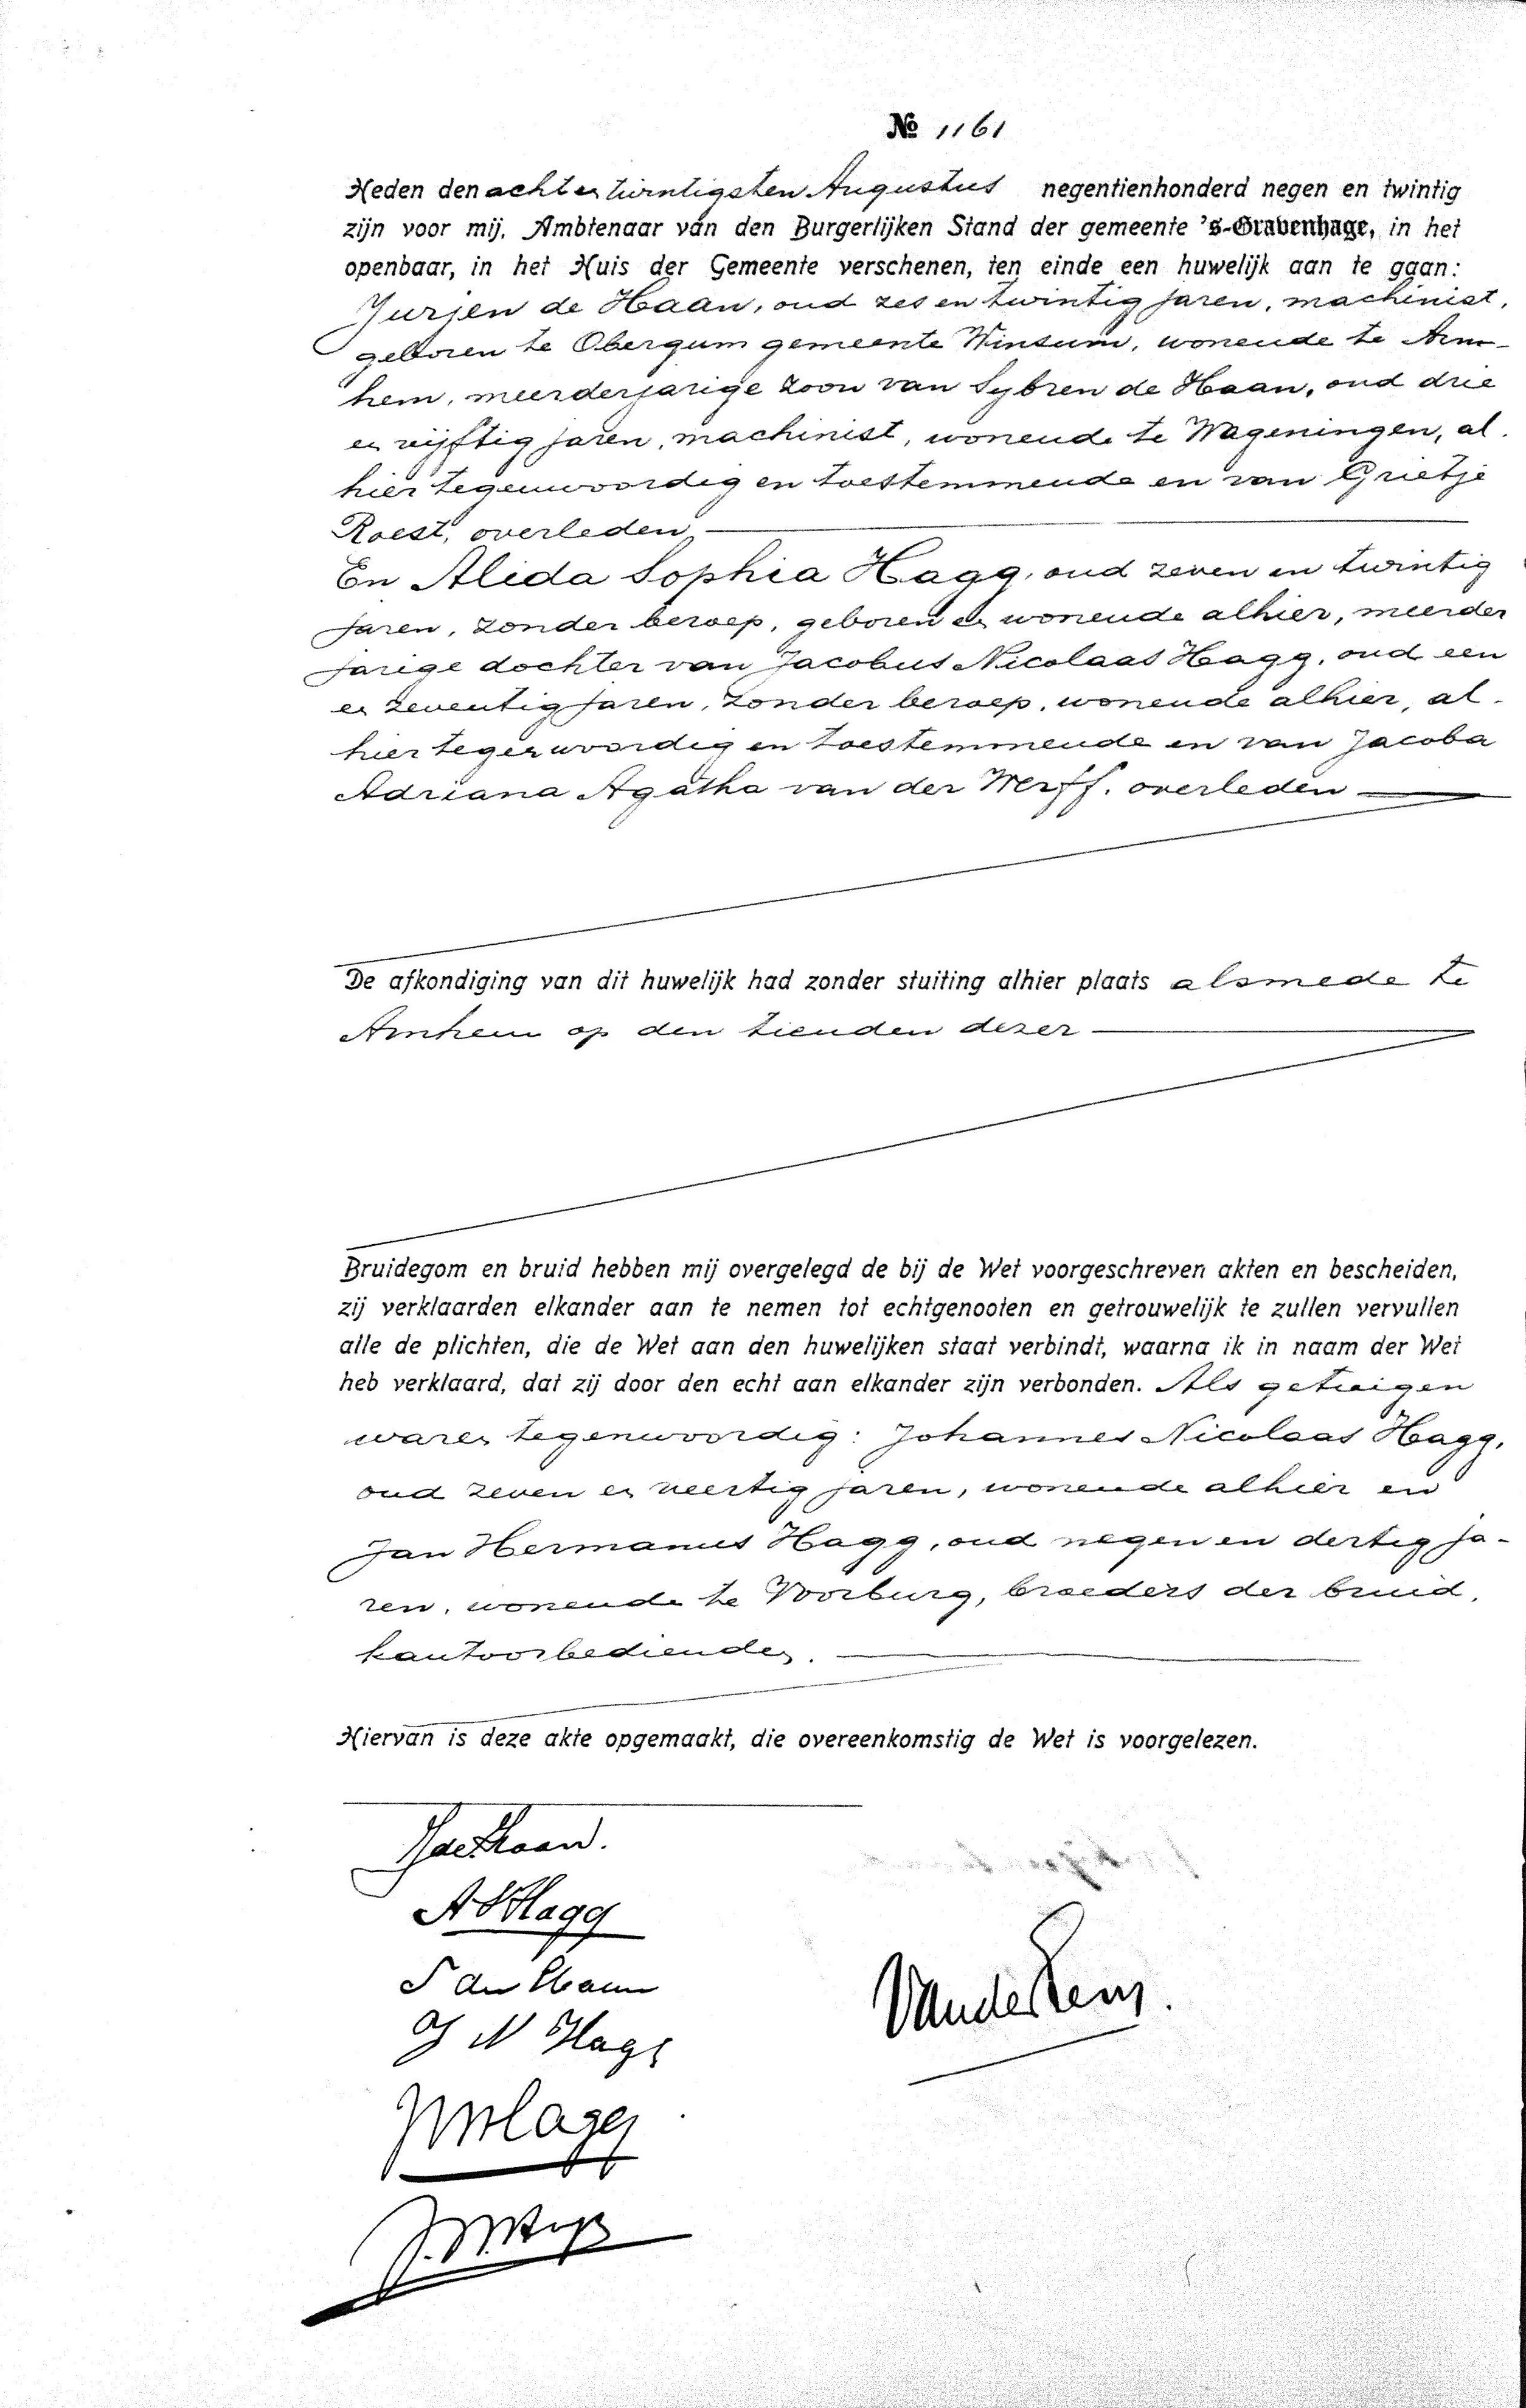 No 1161
Heden den acht en twintigsten Augustus negentienhonderd negen en twintig
zijn voor mij, Ambtenaar van den Burgerlijken Stand der gemeente 's-Gravenhage, in het
openbaar, in het Huis der Gemeente verschenen, ten einde een huwelijk aan te gaan:
Jurjen de Haan, oud zes en twintig jaren, machinist,
geboren te Obergum gemeente Winsum, wonende te Arn-
hem, meerderjarige zoon van Sybren de Haan, oud drie
en vijftig jaren, machinist, wonende te Wageningen, al-
hier tegenwoordig en toestemmende en van Grietje
Roest, overleden
En Alida Sophia Hagg, oud zeven en twintig
jaren, zonder beroep, geboren en wonende alhier, meerder
jarige dochter van Jacobus Nicolaas Hagg, oud een
en zeventig jaren, zonder beroep, wonende alhier, al-
hier tegenwoordig en toestemmende en van Jacoba
Adriana Agatha van der Werff, overleden
De afkondiging van dit huwelijk had zonder stuiting alhier plaats alsmede te
Arnhem op den tienden dezer
Bruidegom en bruid hebben mij overgelegd de bij de Wet voorgeschreven akten en bescheiden,
zij verklaarden elkander aan te nemen tot echtgenooten en getrouwelijk te zullen vervullen
alle de plichten, die de Wet aan den huwelijken staat verbindt, waarna ik in naam der Wet
heb verklaard, dat zij door den echt aan elkander zijn verbonden. Als getuigen
waren tegenwoordig: Johannes Nicolaas Hagg,
oud zeven en veertig jaren, wonende alhier en
Jan Hermanus Hagg, oud negen en dertig ja-
ren, wonende te Voorburg, broeders der bruid,
kantoorbedienden.
Hiervan is deze akte opgemaakt, die overeenkomstig de Wet is voorgelezen.
J de Haan.
A S Hagg
S de Haan
J N Hagg
JNHagg
J.H. Hagg